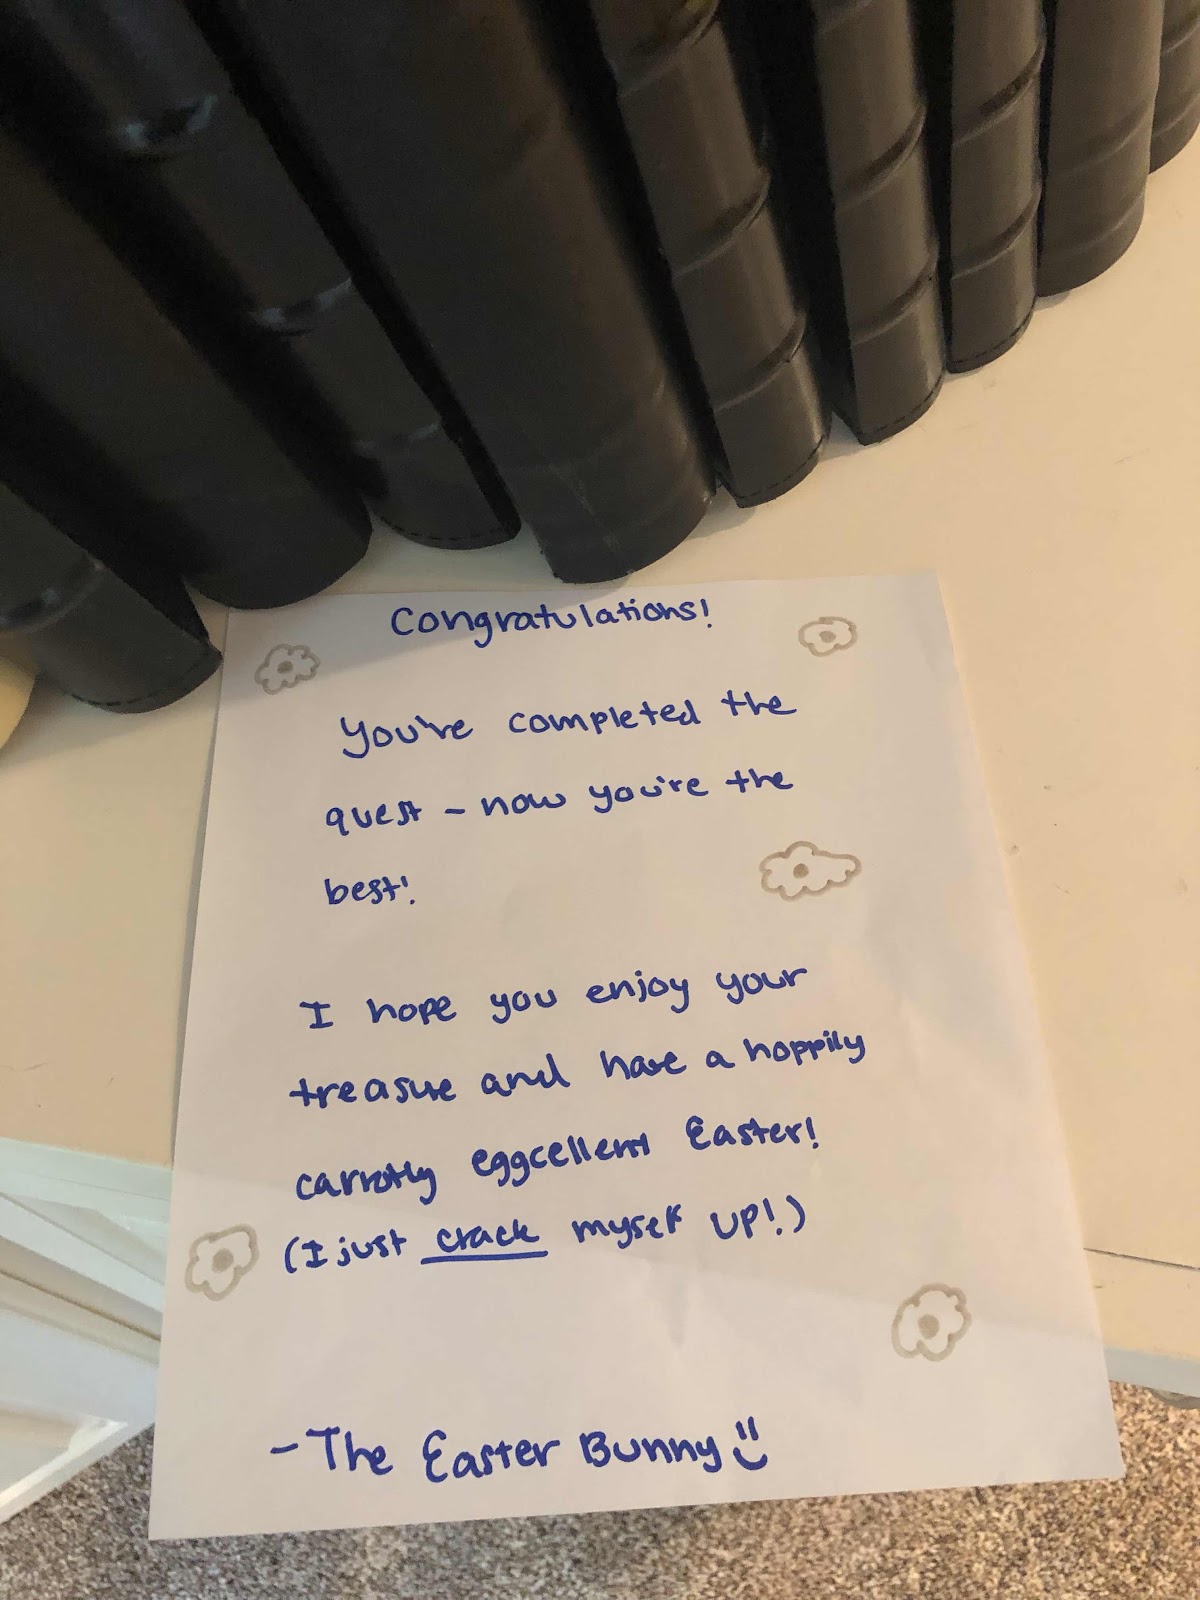 Congratulations!
You've completed the
quest - now you're the
best!
I hope you enjoy your
treasure and have a hoppily
carrotly eggcellent Easter!
(I just crack myself up!)
- The Easter Bunny